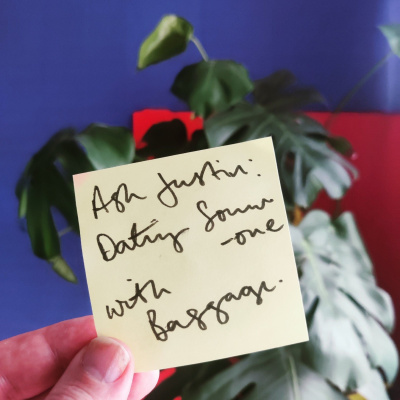 Ask Justin:
Dating Some
-one
with
Baggage.